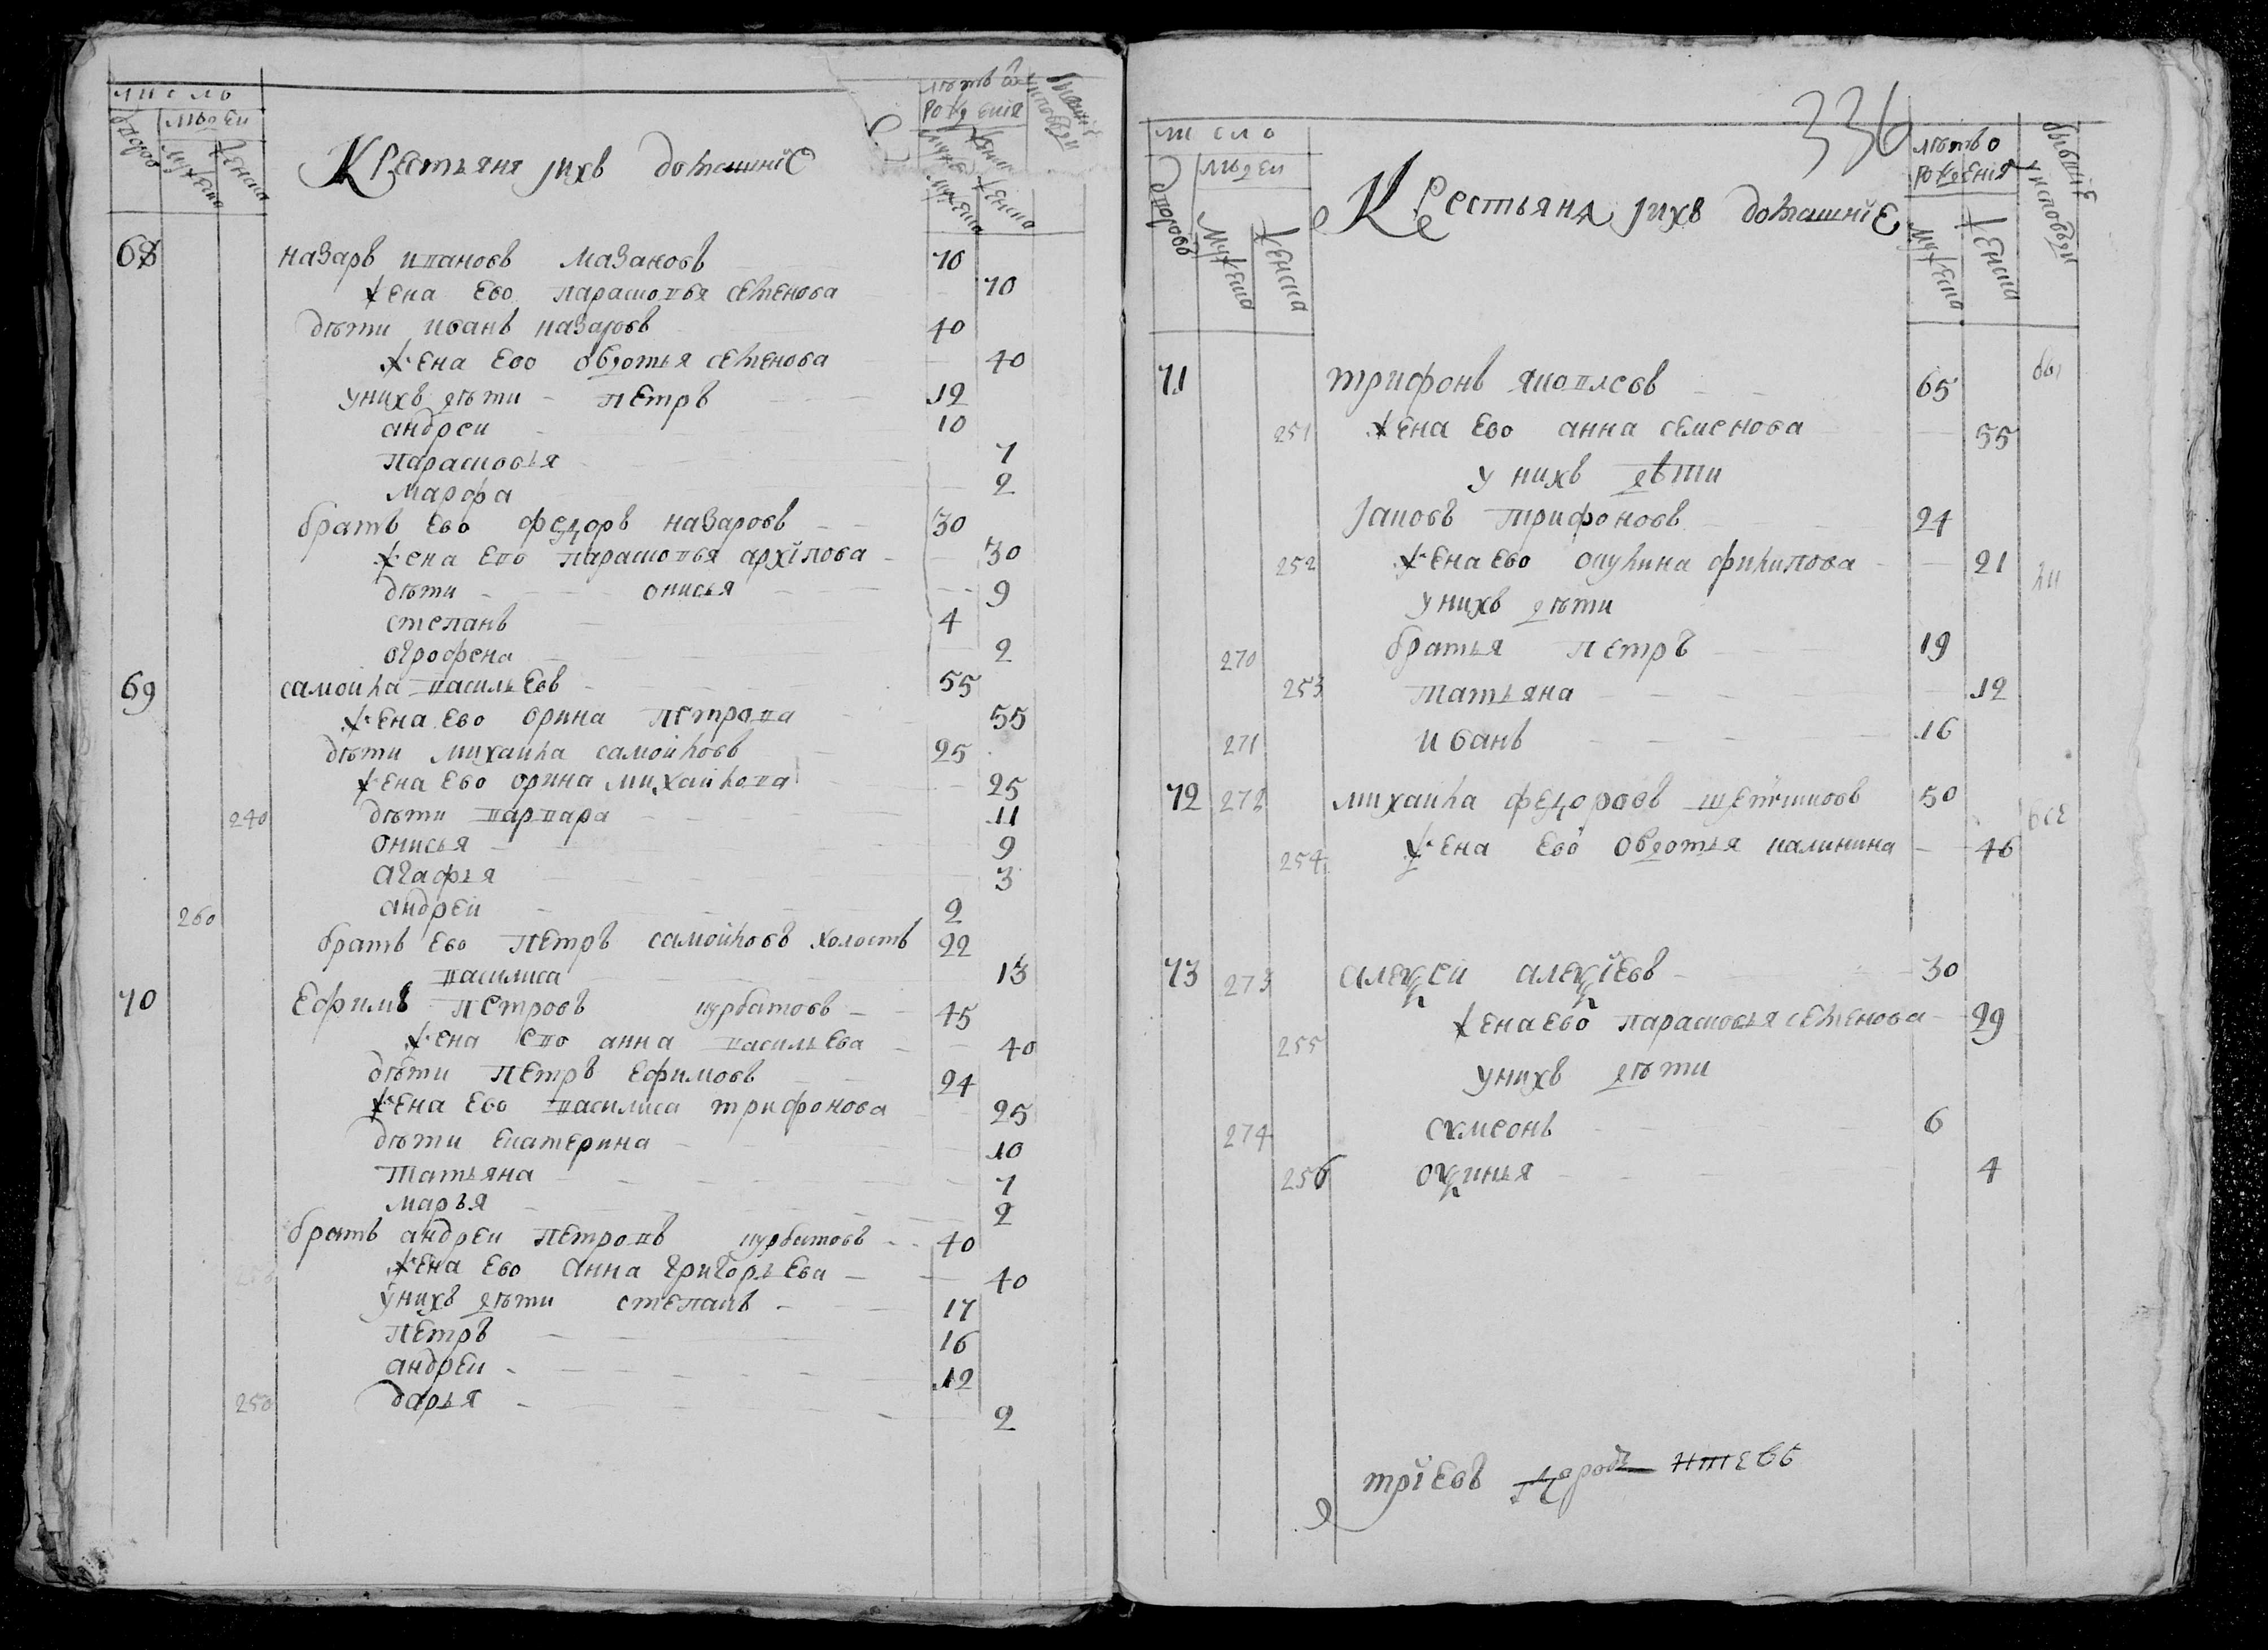 число
дворов
людеи
мужеска
женска
Крестьяня јихъ домашнїе
лѣтъ от
рождения
мужеска
женска
бывшїе
у исповеди
68 назаръ ивановъ мазановъ 70
жена ево парасковья семенова 70
дѣти иванъ назаровъ 40
жена ево овдотья семенова 40
у нихъ дѣти петръ 12
андреи 10
парасковья 7
марфа 2
братъ ево федоръ назаровъ 30
жена ево парасковья архїпова 30
дѣти онисья 9
степанъ 4
огрофена 2
69 самоила васильевъ 55
жена ево орина петрова 55
дѣти михаила самоиловъ 25
жена ево орина михаилова 25
240 дѣти варвара 11
онисья 9
агафья 3
260 андреи 2
братъ ево петръ самоиловъ холостъ 22
василиса 13
70 Ефимъ петровъ курбатовъ 45
жена ево анна васильева 40
дѣти петръ ефимовъ 24
жена ево василиса трифонова 25
дѣти екатерина 10
татьяна 7
марья 2
братъ андреи петровъ курбатовъ 40
жена ево анна григорьева 40
у нихъ дѣти степанъ 17
петръ 16
андреи 12
250 дарья 2
336
число
дворовъ
людеи
мужеска
женска
Крестьяня јихъ домашнїе
лѣтъ о
рождения
мужеска
женска
бывшїе
у исповеди
71 трифонъ яковлевъ 65 бы
251 жена ево анна семенова 55
у нихъ дѣти
јаковъ трифоновъ 24
252 жена ево окулина филипова 21 ли
у нихъ дѣти
270 братья петръ 19
253 татьяна 12
271 иванъ 16
72 272 михаила федоровъ 50 все
254 жена ево овдотья калинина 46
73 273 алеѯеи алеѯїевъ 30
255 жена ево парасковья семенова 29
у нихъ дѣти
274 симеонъ 6
256 оѯинья 4
трїевъ